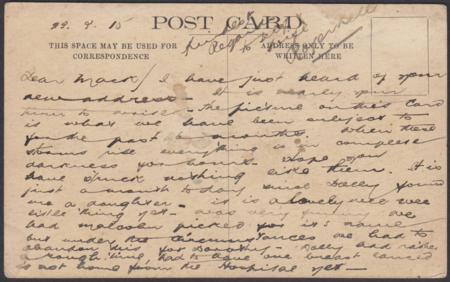 22. 9. 15 POST CARD
THIS SPACE MAY BE USED FOR
CORRESPONDENCE
ADDRESS ONLY TO BE
WRITTEN HERE
Dear Mack / I have just heard of your
new address - It is nearly your
turn to - The picture on this Card
is what we have been subject to
for the past months. When these
storms rise everything is in complete
darkness for hours. Hope you
have struck nothing like them. It is
just a month to day since found
me a daughter - it is a lovely wee
little thing yet - was very funny we
had Malcolm picked for its name
but under the circumstances we had to
abandon this for Dorothy - and
a rough time, had to have one breast lanced
is not home from the Hospital yet -